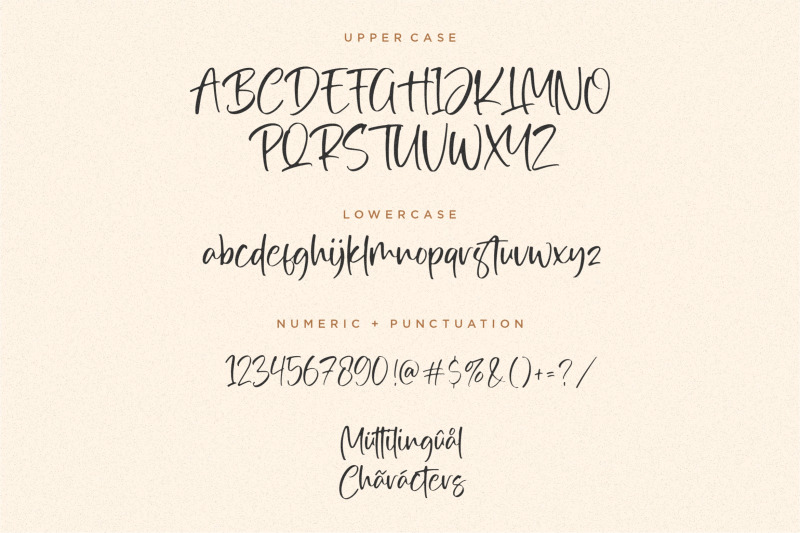 UPPERCASE
ABCDEFGHIJKLMNO
PQRSTUVWXYZ
LOWERCASE
abcdefghijklmnopqrstuvwxyz
NUMERIC + PUNCTUATION
1234567890!@#$%&()+=?/
Müttilingûål
Chãrácters